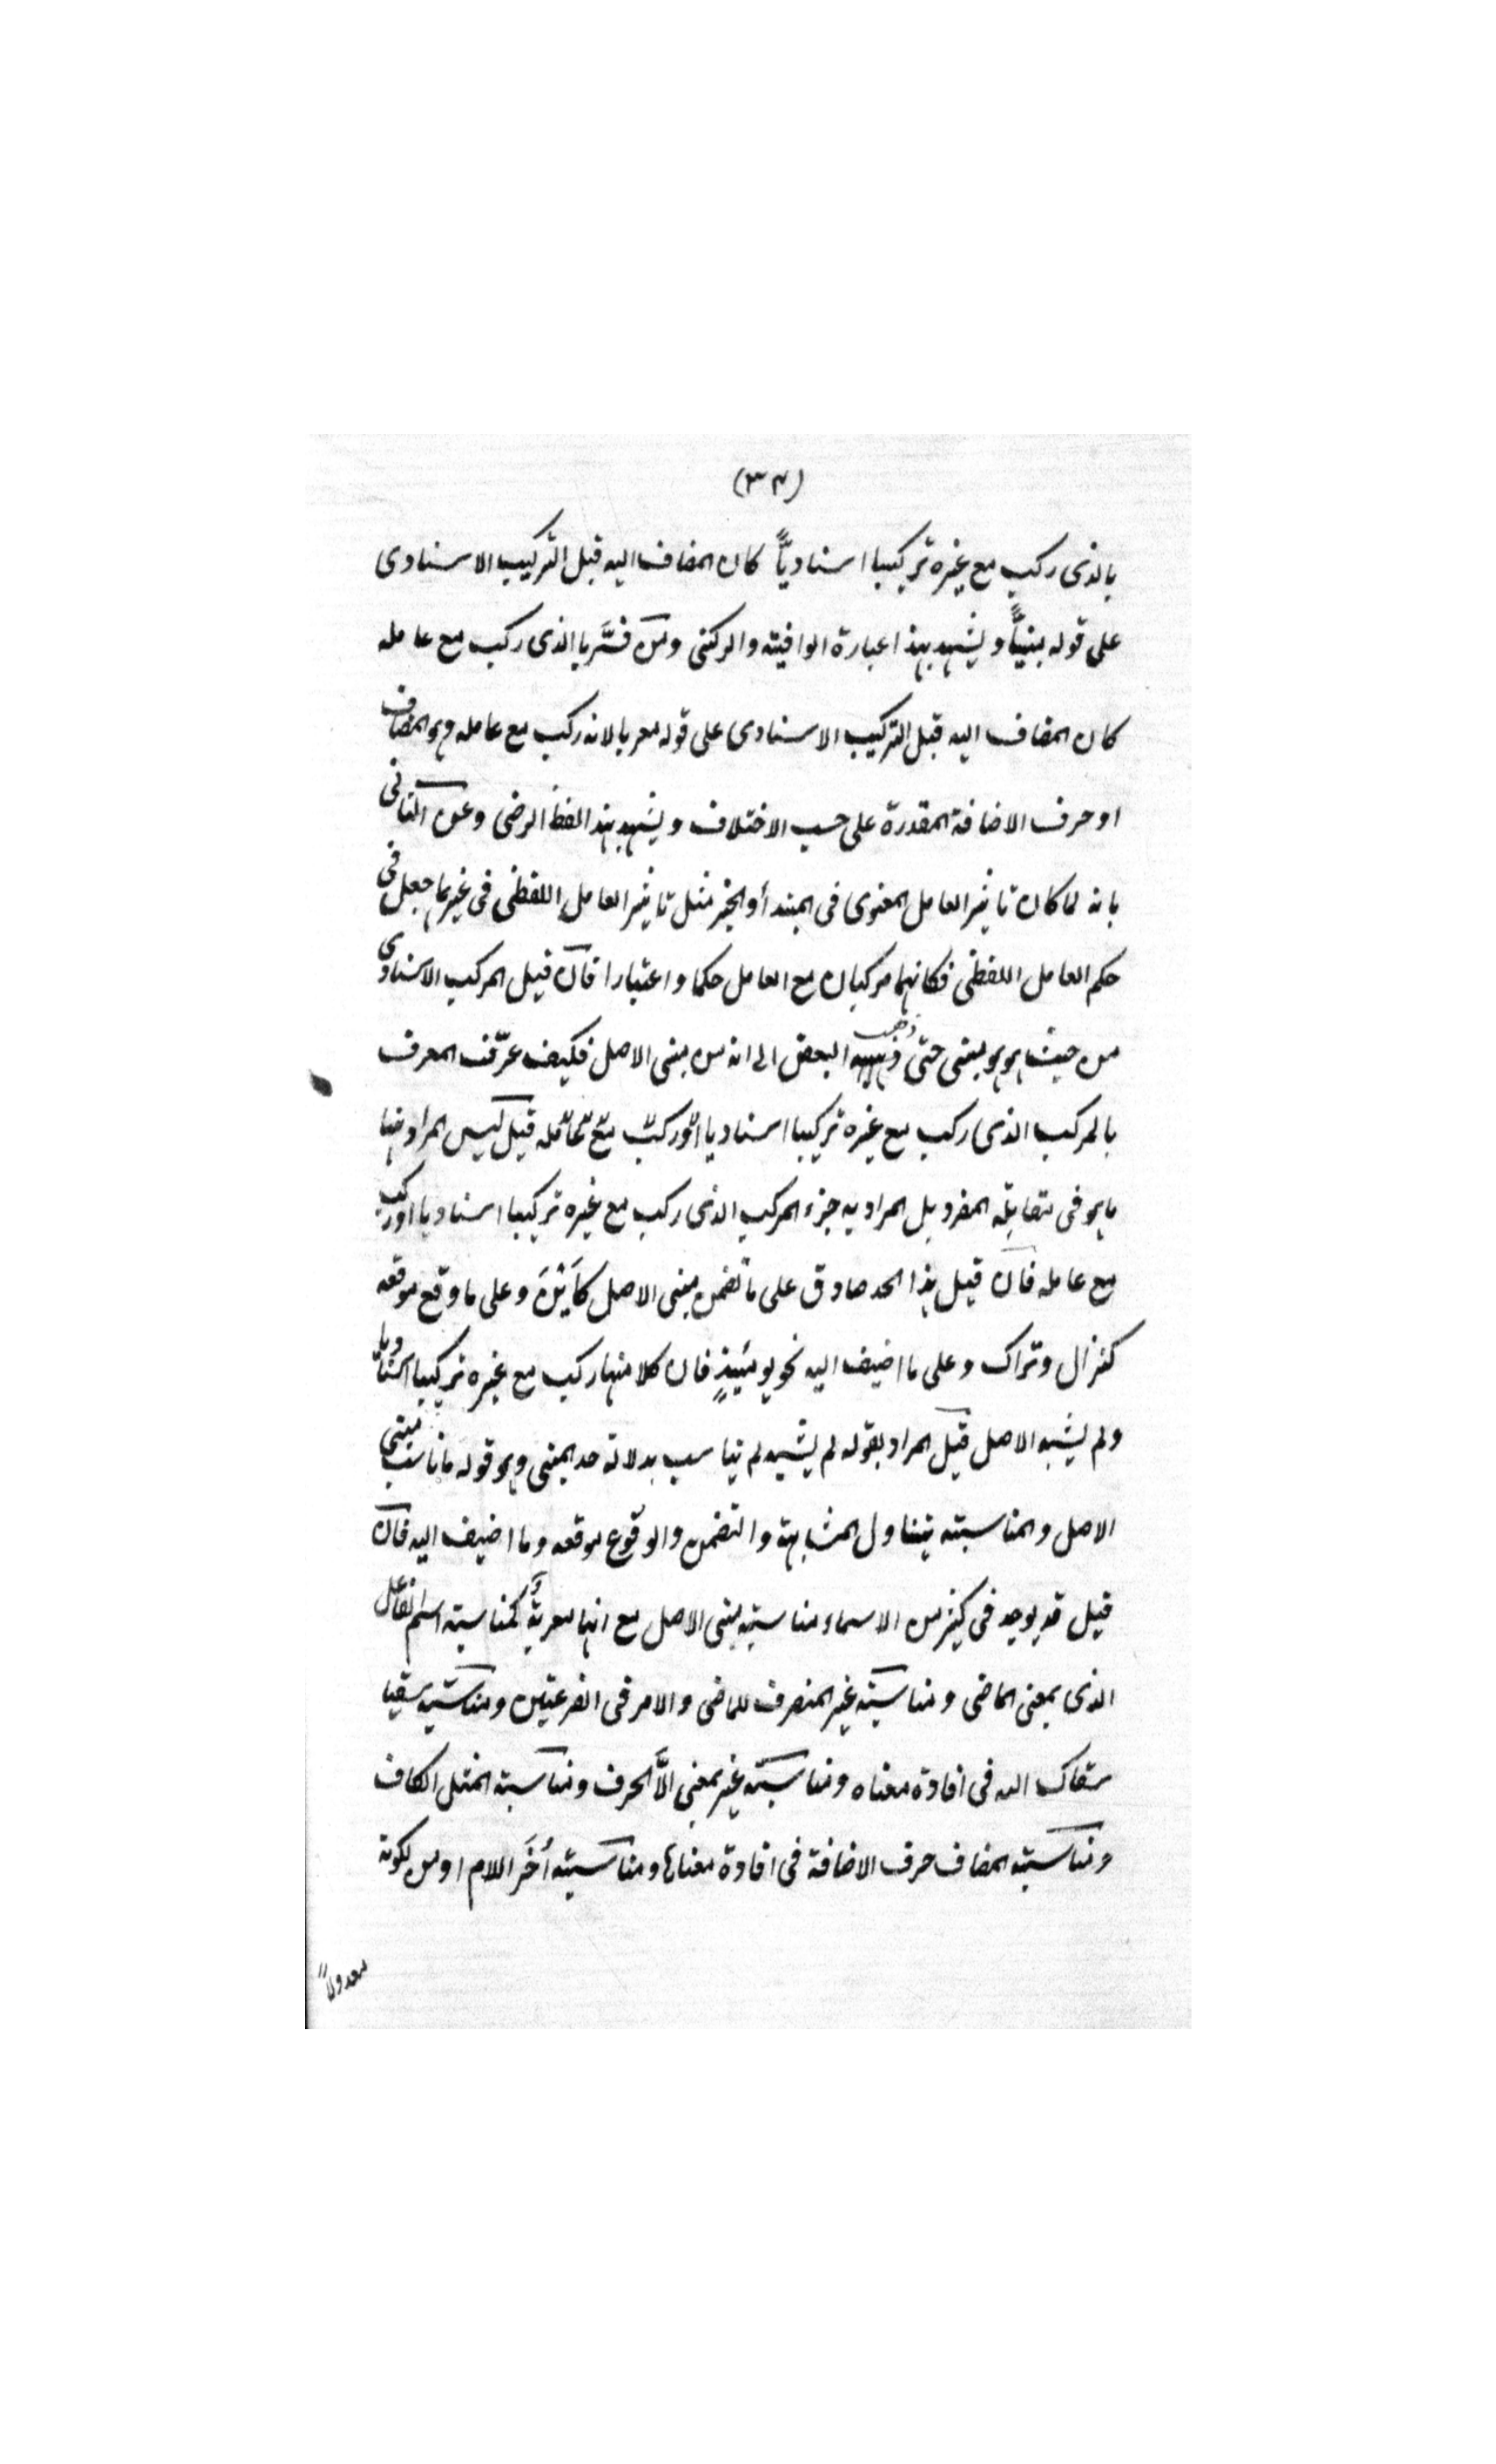 (٣٤)
بالذى ركب مع غيره تركيبا اسناديًّا كان المضاف اليه قبل التركيب الاسنادى
على قوله مبنيًّا ويشهد بهذا عبارة الوافية والركنى ومن فسَّر بالذى ركب مع عامله
كان المضاف اليه قبل التركيب الاسنادى على قوله معربا لانه ركب مع عامله وهو المضاف
او حرف الاضافة المقدرة على حسب الاختلاف ويشهد بهذا لفظ الرضى وعن الثانى
بانه لما كان تاثير العامل المعنوى فى المبتدأ والخبر مثل تاثير العامل اللفظى فى غيرهما جعل فى
حكم العامل اللفظى فكانهما مركبان مع العامل حكما واعتبارا فان قيل المركب الاسنادى
من حيث هو هو مبنى حتى ذهب البعض الى انه من مبنى الاصل فكيف عرّف المعرف
بالمركب الذى ركب مع غيره تركيبا اسناديا او ركب مع عامله قيل ليس المراد هنا
ما هو فى مقابلة المفرد بل المراد به جزء المركب الذى ركب مع غيره تركيبا اسناديا او ركب
مع عامله فان قيل هذا الحد صادق على ما تضمن مبنى الاصل كاَيْنَ وعلى ما وقع موقعه
كنزال وتراك وعلى ما اضيف اليه نحو يومئيذٍ فان كلا منها ركب مع غيره تركيبا اسناديا
ولم يشبه الاصل قيل المراد بقوله لم يشبه لم يناسب بدلالة حد المبنى وهو قوله ما ناسب مبنى
الاصل والمناسبته يتناول المشابهة والتضمن والوقوع موقعه وما اضيف اليه فان
قيل قد يوجد فى كثير من الاسماء مناسبته مبنى الاصل مع انها معربةٌ كمناسبته اسم الفاعل
الذى بمعنى الماضى ومناسبته غير المنصرف للماضى والامر فى الفرعيتين ومناسبته سقيا
سقاك الله فى افادة معناه ومناسبته غير بمعنى الاَّ الحرف ومناسبته المثل الكاف
ومناسبته المضاف حرف الاضافة فى افادة معناها ومناسبته أخَر اللام او من لكونه
معدولاً